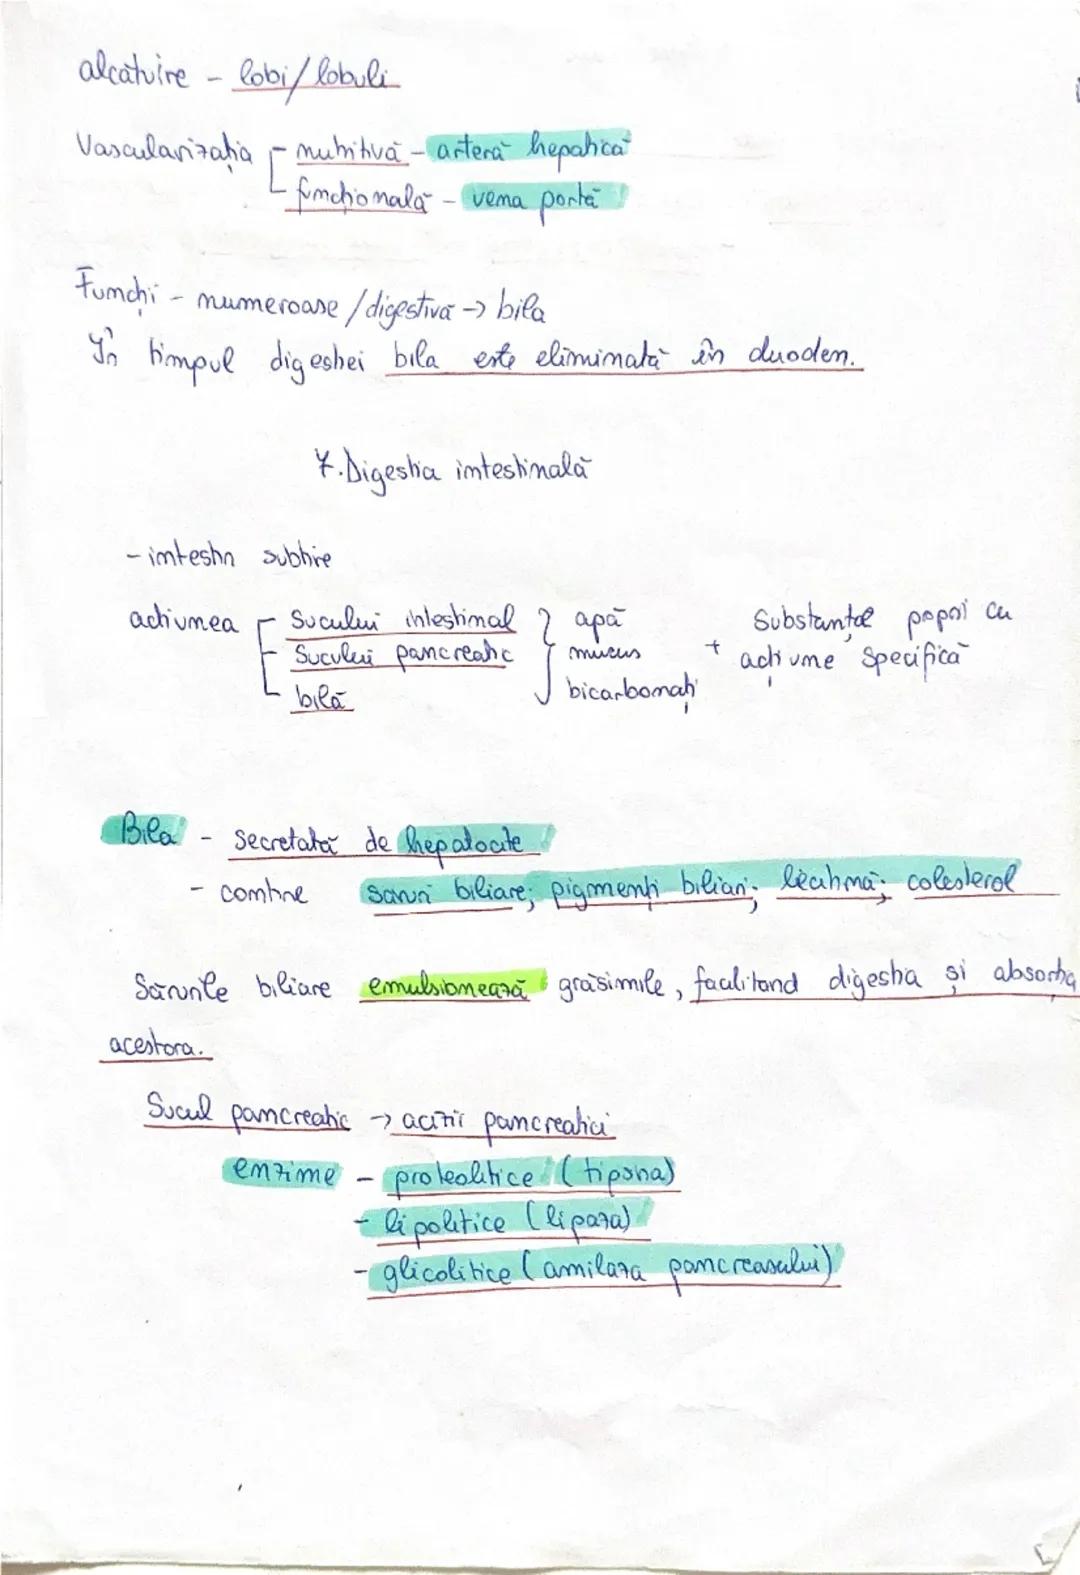 alcătuire - lobi/lobuli
Vascularizația - nutritivă - arteră hepatică
- funcțională - vena portă
Funcții - numeroase /digestivă → bila
În timpul digestiei bila este eliminată în duoden.
7. Digestia intestinală
- intestin subțire
acțiunea - Sucului intestinal } apă + Substanțe proprii cu
- Sucului pancreatic mucus acțiune specifică
- bilă bicarbonați
Bila - secretată de hepatocite
- conține săruri biliare; pigmenți biliari; lecitină; colesterol
Sărurile biliare emulsionează grăsimile, facilitand digestia și absorția
acestora.
Sucul pancreatic → acinii pancreatici
enzime - proteolitice (tipsna)
- lipolitice (lipaza)
- glicolitice (amilaza pancreasului)